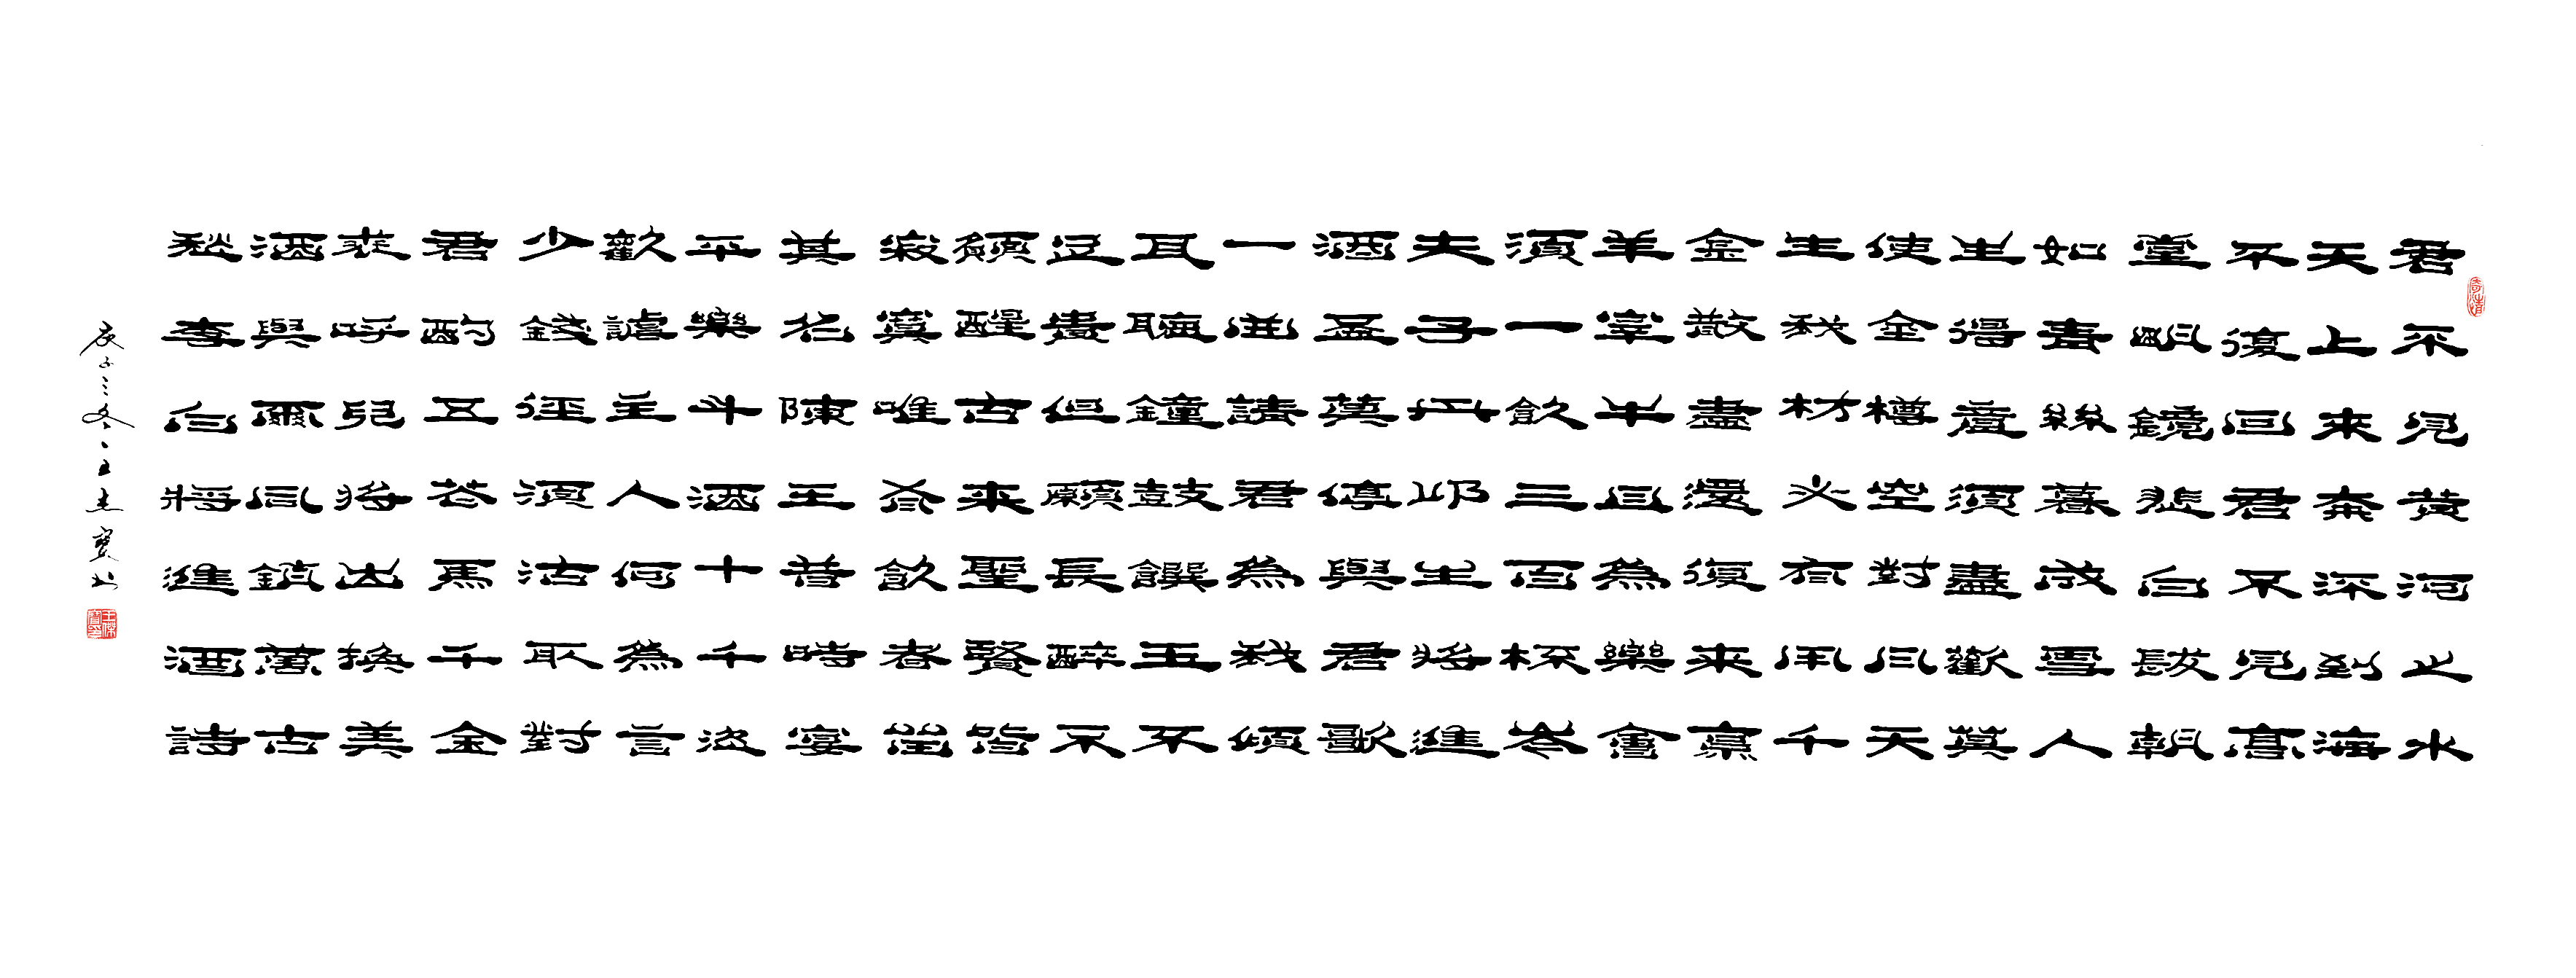 君不見黃河之水
天上來奔流到海
不復回君不見高
堂明鏡悲白髮朝
如青絲暮成雪人
生得意須盡歡莫
使金樽空對月天
生我材必有用千
金散盡還復來烹
羊宰牛且為樂會
須一飲三百杯岑
夫子丹邱生將進
酒盃莫停與君歌
一曲請君為我傾
耳聽鐘鼓饌玉不
足貴但願長醉不
願醒古來聖賢皆
寂寞唯有飲者留
其名陳王昔時宴
平樂斗酒十千恣
歡謔主人何為言
少錢徑須沽取對
君酌五花馬千金
裘呼兒將出換美
酒與爾同銷萬古
愁李白將進酒詩
庚子之冬王杰寶書